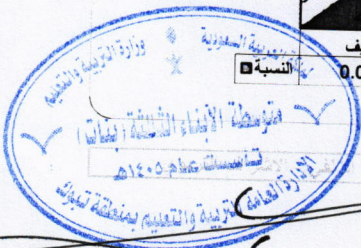 المملكة العربية السعودية
وزارة التربية والتعليم
متوسطة الأبناء الثالثة (بنات)
تأسست عام ١٤٠٥هـ
الإدارة العامة للتربية والتعليم بمنطقة تبوك
النسبة
0.0